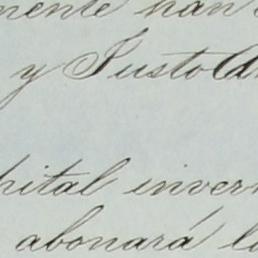 mente han
y Justo
pital inver
abonará l